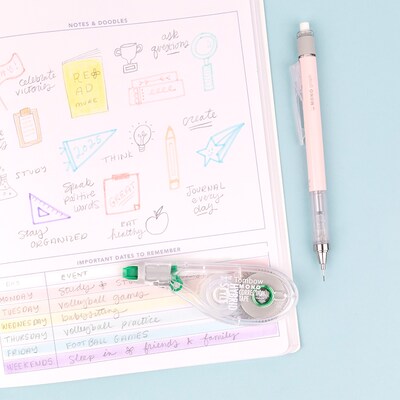 NOTES & DOODLES
celebrate
victories
READ
more
ask
questions
2020
THINK
create
STUDY
Speak
positive
words
GREAT
JOURNAL
every
day
Stay
ORGANIZED
EAT
healthy
IMPORTANT DATES TO REMEMBER
DAY EVENT
MONDAY Study
TUESDAY volleyball games
WEDNESDAY babysitting
THURSDAY volleyball practice
FRIDAY FOOTBALL GAMES
WEEKENDS Sleep in * friends * family
Tombow
MONO
CORRECTION
TAPE
MONO